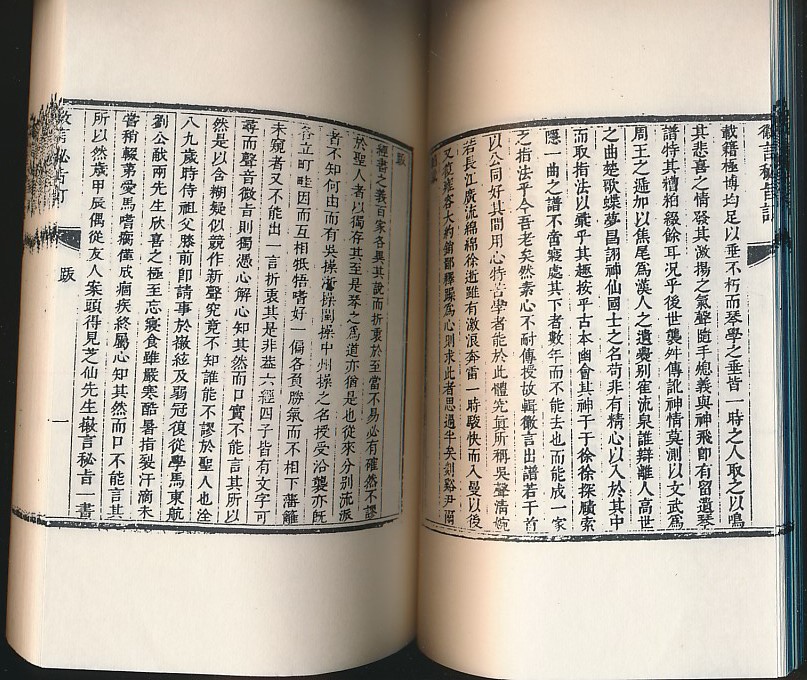 徽言秘旨訂
載籍極博均足以垂不朽而琴學之垂皆一時之人取之以鳴
其悲喜之情發其激揚之氣聲隨手㧾義與神飛卽有留遺琴
譜特其糟粕綴餘耳况乎後世襲舛傳訛神情莫測以文武爲
周王之遞加以焦尾爲漢人之遺爨別雀流泉誰辯離人高世
之曲楚歌蝶夢昌詡神仙國士之名苟非有精心以入於其中
而取指法以羕乎其趣按乎古本幽會其神于于徐徐探賾索
隱一曲之譜不啻寢處其下者數年而不能去也而能成一家
之指法乎今吾老矣然素心不耐傳授故輯徽言出譜若干首
以公同好其間用心特苦學者能於此體究眞所稱吳聲淸婉
若長江廣流綿綿徐逝雖有激浪奔雷一時駿快而入曼以後
又復雍容大約銷鄙釋躁爲心則求此者思過半矣剡谿尹爾
跋
經書之義百家各異其說而折衷於至當不易必有確然不謬
於聖人者以獨存其至是琴之爲道亦猶是也從來分別流派
者不知何由而有吳操浙操閩操中州操之名授受沿襲亦旣
各立町畦因而互相牴牾嗜好一偏各負勝氣而不相下藩籬
未窺者又不能出一言折衷其是非葢六經四子皆有文字可
尋而聲音徽吉則獨憑心解心知其然而口實不能言其所以
然是以含糊疑似競作新聲究竟不知誰能不謬於聖人也洤
八九歲時侍祖父膝前卽請事於徽絃及弱冠復從學馬東航
劉公獻兩先生欣喜之極至忘寢食雖嚴寒酷暑指裂汗滴未
嘗稍輟弟愛馬嗜癖僅成痼疾終屬心知其然而口不能言其
所以然歲甲辰偶從友人案頭得見芝仙先生徽言秘旨一書
徽言秘旨訂
跋
一